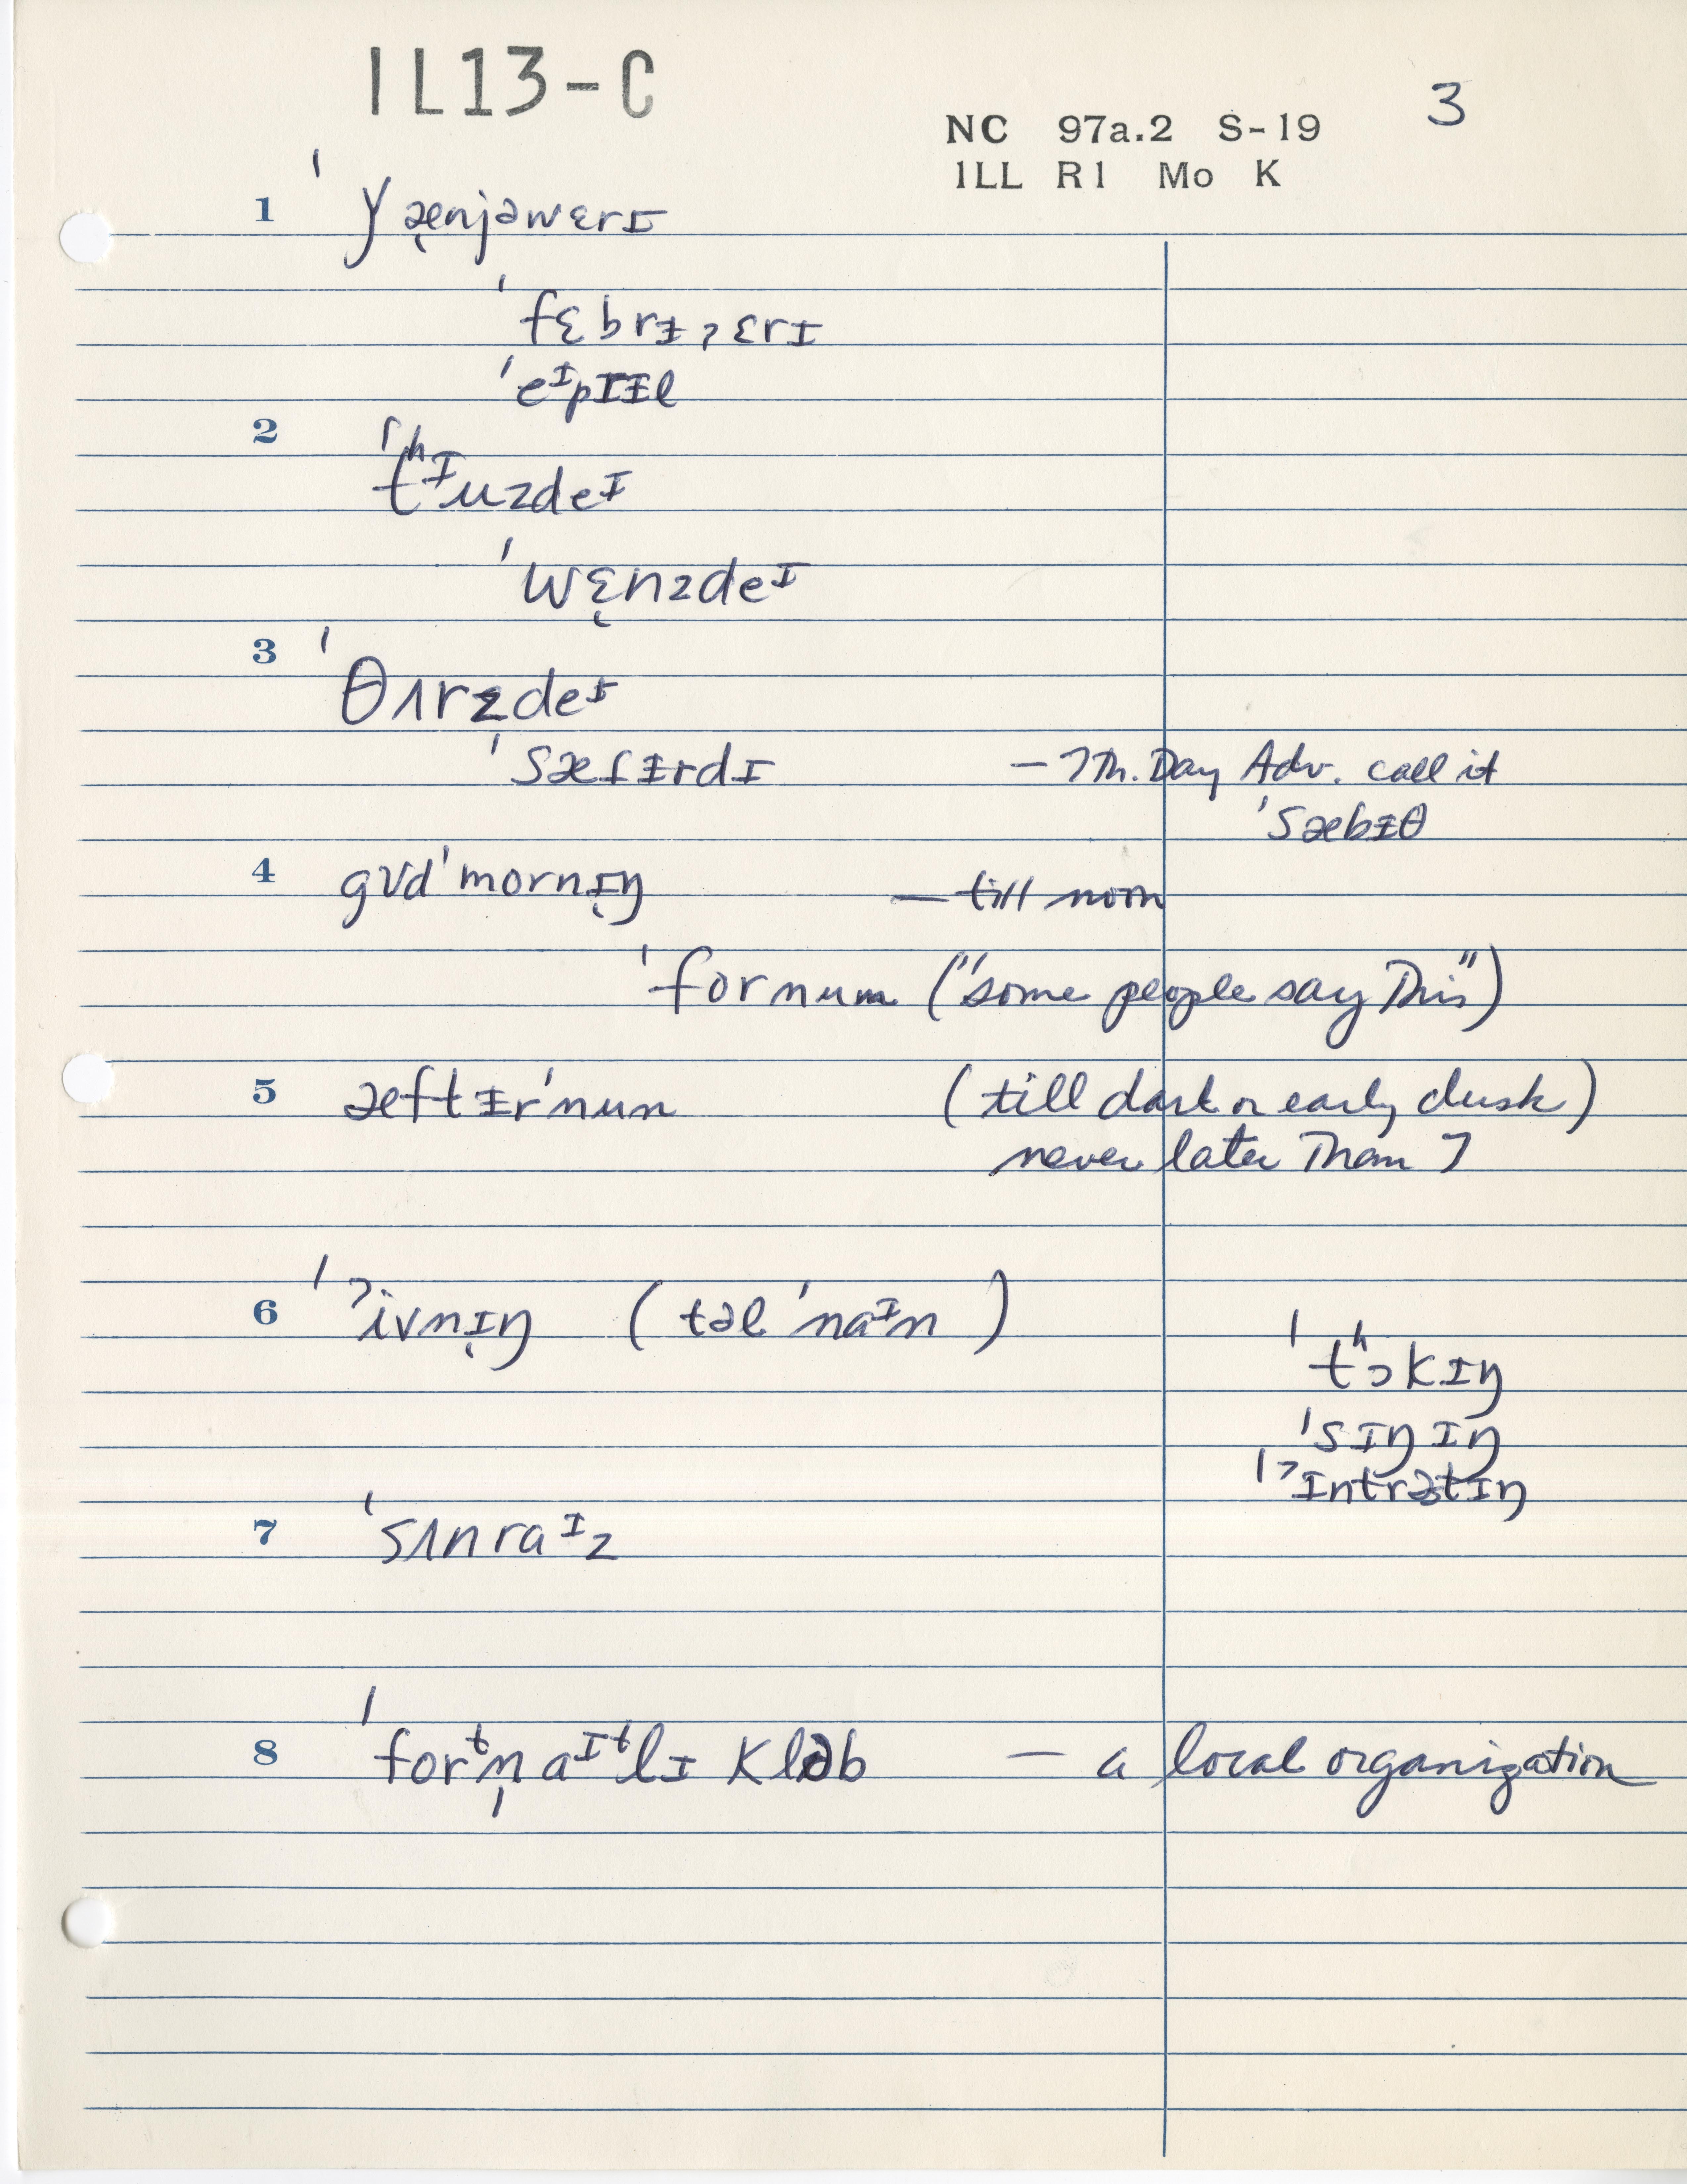 IL13-C
3
NC 97a.2 S-19
ILL R1 Mo K
1 ˈy æ̨njəwɛrɪ
ˈfɛbrᵻˀɛrɪ
2 ˈtʰᶦuzdeᶦ
ˈwɛ̨nzdeᶦ
3 ˈθʌrzdeᶦ
— 7th. Day Adv. call it
ˈsæbᵻθ
4 gʊdˈmornɪ̨ŋ — till noon
ˈfornum ("some people say this")
5 æftᵻrˈnun (till dark or early dusk)
never later than 7
6 ˈˀivnɪ̨ŋ (təlˈnaᶦn)
ˈtʰɔkɪŋ
ˈsɪŋɪŋ
7 ˈsʌnraᶦz
8 ˈforᵗn̩aᶦᵗlɪ kləb — a local organization